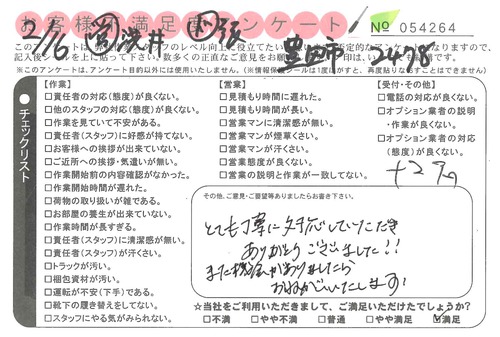 お客様満足度アンケート!
№ 054264
2/16 洗井 出張 豊田市 2478
記入後シールを上に貼って下さい。数多くの正直なご意見をお願い
※このアンケートは、アンケート目的以外には使用いたしません。(※情報保護シールは1度はがすと、再度貼りなおすことはできません)
チェックリスト
【作業】
□責任者の対応(態度)が良くない。
□他のスタッフの対応(態度)が良くない。
□作業を見ていて不安がある。
□責任者(スタッフ)に好感が持てない。
□お客様への挨拶が出来ていない。
□ご近所への挨拶・気遣いが無い。
□作業開始前の内容確認がなかった。
□作業開始時間が遅れた。
□荷物の取り扱いが雑である。
□お部屋の養生が出来ていない。
□作業時間が長すぎる。
□責任者(スタッフ)に清潔感が無い。
□責任者(スタッフ)が汗くさい。
□トラックが汚い。
□梱包資材が汚い。
□運転が不安(下手)である。
□靴下の履き替えをしてない。
□スタッフにやる気がみられない。
【営業】
□見積もり時間に遅れた。
□見積もり時間が長い。
□営業マンに清潔感が無い。
□営業マンが煙草くさい。
□営業マンが汗くさい。
□営業態度が良くない。
□営業の説明と作業が一致してない。
【受付・その他】
□電話の対応が良くない。
□オプション業者の説明
・作業が良くない。
□オプション業者の対応
(態度)が良くない。
その他、ご意見・ご要望等ありましたらお書き下さい。
とても丁寧に対応していただき
ありがとうございました!!
また機会がありましたら
おねがいいたします!
☆当社をご利用いただきまして、ご満足いただけたでしょうか?
□不満 □やや不満 □普通 □やや満足 ☑満足